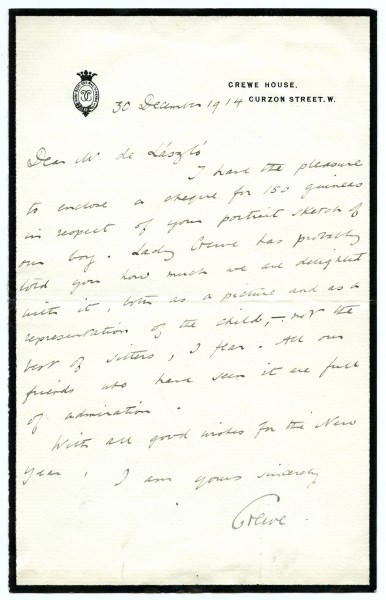 CREWE HOUSE,
CURZON STREET. W.
30 December 1914
Dear Mr. de László
I have the pleasure
to enclose a cheque for 150 guineas
in respect of your portrait sketch of
our boy. Lady Crewe has probably
told you how much we are delighted
with it, both as a picture and as a
representation of the child, – not the
best of sitters, I fear. All our
friends who have seen it are full
of admiration.
With all good wishes for the New
Year, I am yours sincerely
Crewe.